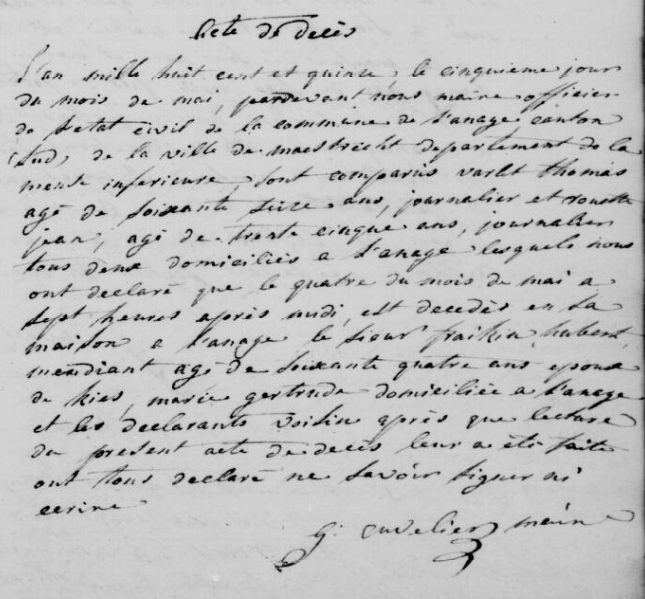 acte de decès
L'an mille huit cent et quinze, le cinquieme jour
du mois de mai, pardevant nous maire officier
de l'etat civil de la commune de Lanaye canton
Sud, de la ville de maestrecht departement de la
meuse inferieure, sont comparus varlet thomas
agé de soixante seize ans, journalier et rouette
jean, agé de trente cinque ans, journalier
tous deux domiciliés a Lanaye lesquels nous
ont declaré que le quatre du mois de mai a
sept heures après midi, est decedés en sa
maison a Lanaye le sieur fraikin, hubert,
mendiant agé de soixante quatre ans epoux
de kies, marie gertrude domiciliée a Lanaye
et les declarants voisin après que lecture
du present acte de decès leur a été faite
ont tous declaré ne savoir signer ni
ecrire
G. Cuvelier maire